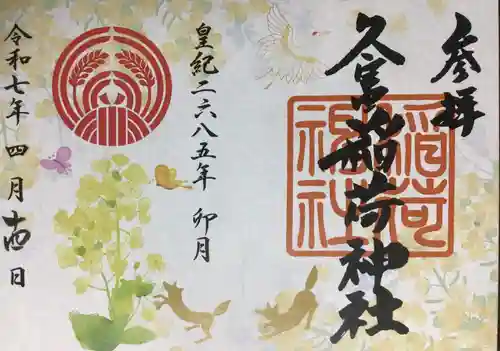 参拝
久富稲荷神社
稲荷
神社
皇紀二六八五年 卯月
令和七年 四月十四日